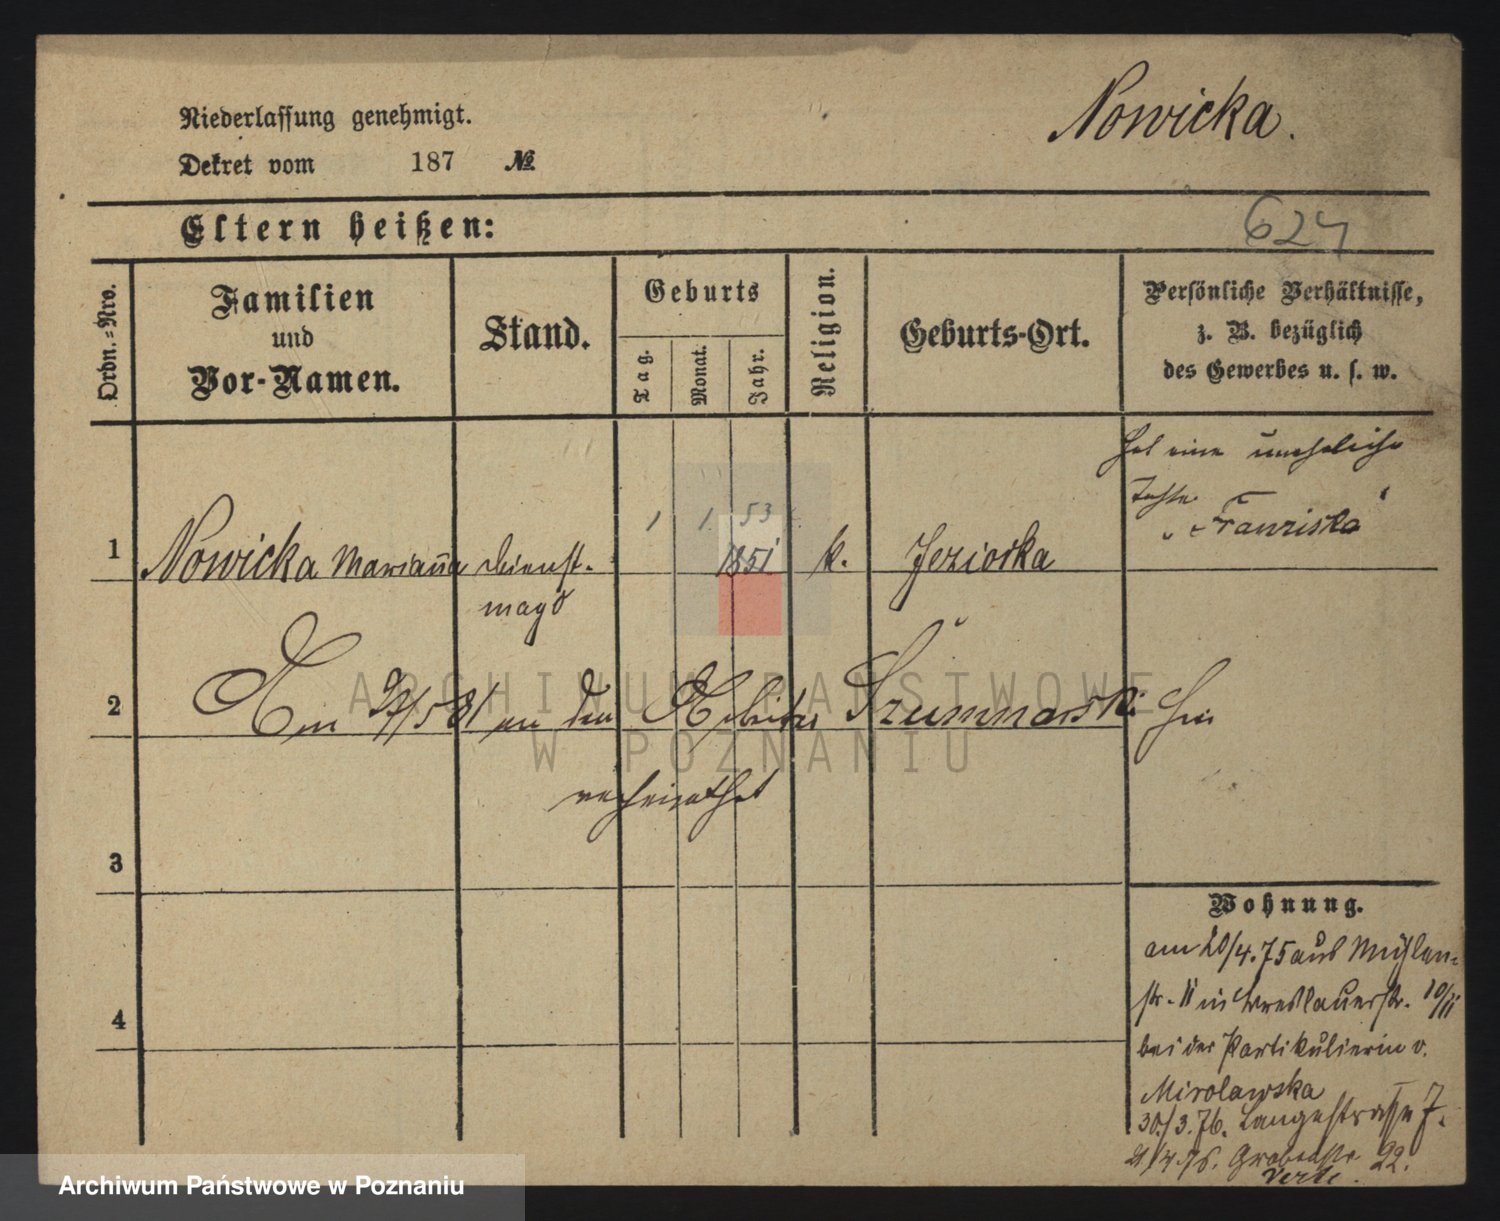 Niederlassung genehmigt.
Dekret vom 187 №
Nowicka.
Eltern heißen:
624
Ordn.-Nro.
Familien und Vor-Namen.
Stand.
Geburts
Tag.
Monat.
Jahr.
Religion.
Geburts-Ort.
Persönliche Verhältnisse,
z. B. bezüglich
des Gewerbes u. s. w.
hat eine uneheliche
Tochter
"Franziska"
1 1. 53
1 Nowicka Marianna Dienst- 1851 k. Jeziorka
magd
2 Am /5 81 an den Arbeiter Szumnarski hier
verheirathet
3
4
Wohnung.
am 20/4.75 aus Mühlen-
str. 11 in Breslauerstr. 10/11
bei der Partikulierin v.
Mirolawska
30/3.76. Langestrasse 7.
21/4.76. Grabenstr 22.
Verte.
ARCHIWUM PAŃSTWOWE
W POZNANIU
Archiwum Państwowe w Poznaniu